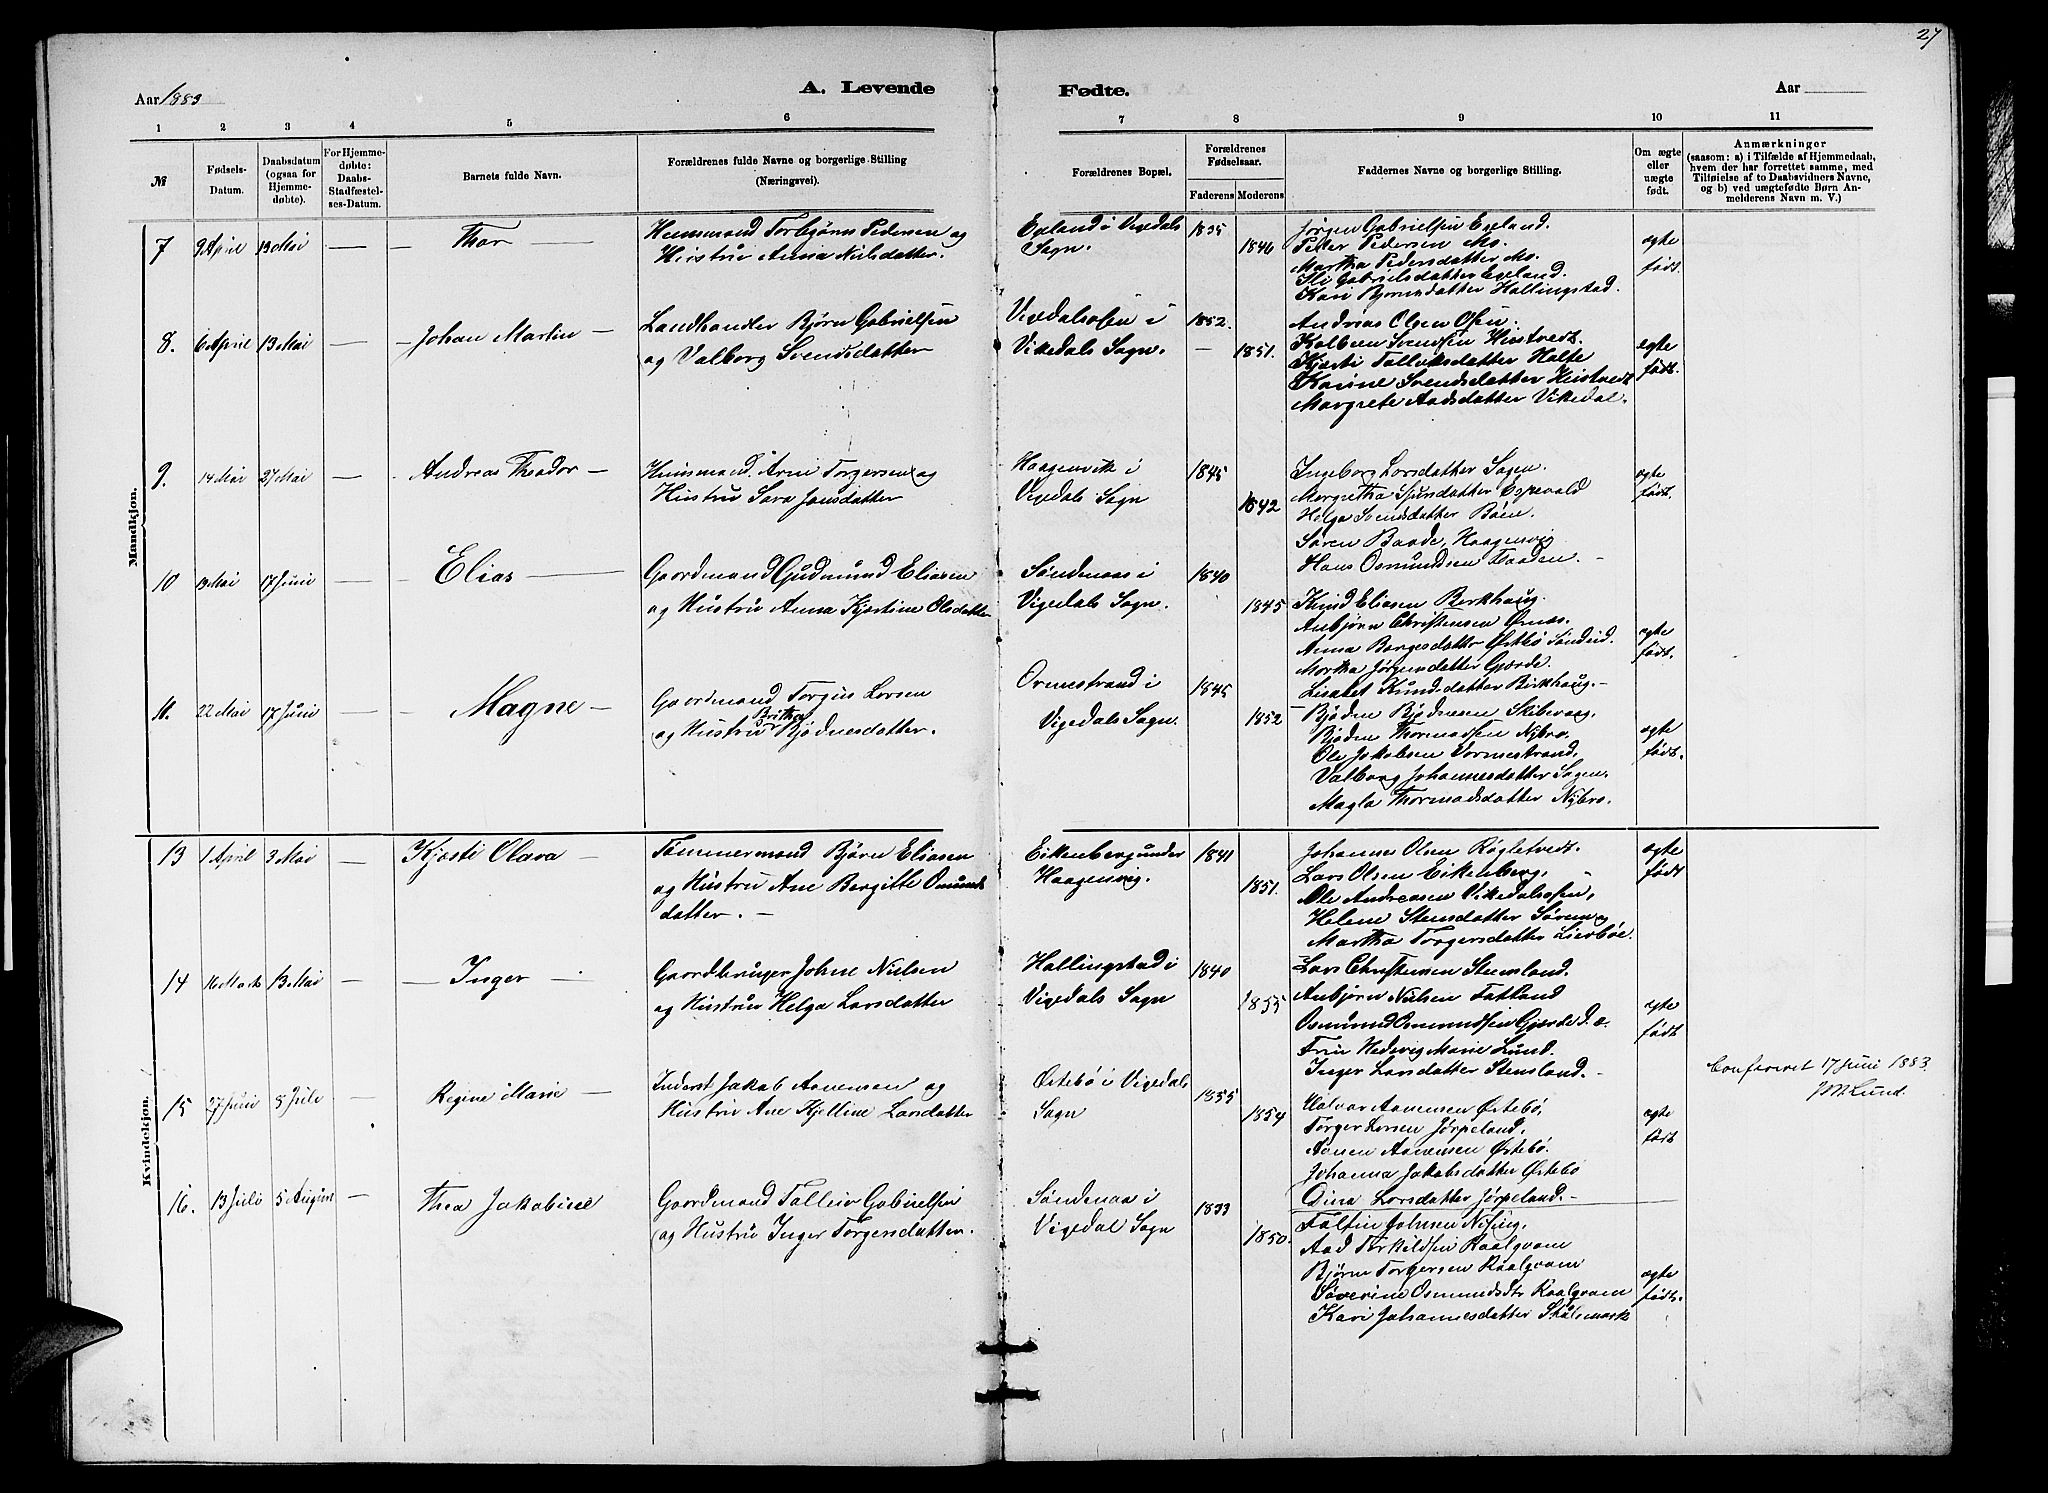 27
Aar 1883
A. Levende
Fødte.
Aar
1 2 3 4 5 6 7 8 9 10 11
№
Fødsels-Datum.
Daabsdatum (ogsaa for Hjemme-døbte).
For Hjemme-døbte: Daabs-Stadfæstel-ses-Datum.
Barnets fulde Navn.
Forældrenes fulde Navne og borgerlige Stilling (Næringsvei).
Forældrenes Bopæl.
Forældrenes Fødselsaar.
Faderens Moderens
Faddernes Navne og borgerlige Stilling.
Om ægte eller uægte født.
Anmærkninger
(saasom: a) i Tilfælde af Hjemmedaab,
hvem der har forrettet samme, med
Tilføielse af to Daabsvidners Navne,
og b) ved uægtefødte Børn An-
melderens Navn m. V.)
Mandkjøn.
7 9 April 13 Mai — — Thor —
Huusmand Torbjørn Pedersen og
Hustru Anna Nilsdatter.
Egeland i Vigedals
Sogn.
1835
1846
Jørgen Gabrielsen Egeland.
Peder Pedersen Mo.
Martha Pedersdatter Mo.
Gabrielsdatter Egeland.
Kari Bjørnsdatter Hallingstad.
ægte
født.
8. 6 April 13 Mai — — Johan Martin —
Landhandler Bjørn Gabrielsen
og Valborg Svendsdatter
Vigedalsosen i
Vikedals Sogn.
1852.
— 1851.
Andreas Olsen Osen.
Kolbeen Svendsen Hustvedt.
Kjærsti Tollaksdatter Halte
Karine Svendsdatter Hustvedt
Margrete Aadsdatter Vikedal.
ægte
født.
9. 14 Mai 27 Mai — — Andreas Theodor —
Huusmand. Arne Torgersen og
Hustru Sara Jansdatter
Haagenvik i
Vigedals Sogn
1845
1842
Ingeborg Larsdatter Sagen.
Margretha Espevold
Helga Svendsdatter Bøen.
Søren Baade, Haagenvig
Hans Osmundsen —
ægte
født.
10 13 Mai 17 Juni — — Elias —
Gaardmand Gudmund Eliasen
og Hustru Anna Kjerstine Olsdatter
Søndenaa i
Vigedals Sogn.
1840
1845
Knud Eliasen Berkhaug.
Anbjørn Christensen Ørnæs.
Anna Børgesdatter Østbø Søndeid.
Martha Jørgensdatter Gjerde.
Lisabet Knudsdatter Birkhaug. —
ægte
født.
11. 22 Mai 17 Juni — — Magne —
Gaardmand Torgius Larsen
og Hustru Britha Bjødnesdatter.
Ormestrand i
Vigedals Sogn.
1845
1852
Bjøden Bjødnesen Skibevaag.
Bjøden Thormodsen Nybro.
Ole Jakobsen Vormestrand.
Valborg Johannesdatter Sagen.
Magla Thormodsdatter Nybro.
ægte
født.
Kvindekjøn.
13 1 April 3 Mai — Kjæsti Olava —
Tømmermand Bjørn Eliasen
og Hustru Ane Bergitte Omunds
datter. —
Eikenberg under
Haagenvig.
1841
1851.
Johannes Olsen Røgletvedt.
Lars Olsen Eikenberg,
Ole Andreasen Vikedalsosen,
Helene Stensdatter
Martha Torgersdatter Lierbøe.
ægte
født
14 16 Marts 13 Mai — — Inger —
Gaardbruger Johne Nielsen
og Hustru Helga Larsdatter
Hallingstad i
Vigedals Sogn
1840
1855
Lars Christensen Stensland.
Anbjørn Nielsen Fatland
Osmund Osmundsen Gjerde d. æ.
Fru Hedevig Marie Lund.
Inger Larsdatter Stensland. —
ægte
født
Confereret 17 Juni 1883.
Lund.
15 27 Juni 8 Juli — Regine Marie —
Inderst Jakob Aanensen og
Hustru Ane Kjelline Larsdatter
Østebø i Vigedals
Sogn
1855
1854
Halvor Aanensen Østebø,
Torger Larsen Jørpeland,
Aanen Aanensen Østebø.
Johanna Jakobsdatter Østebø
Dina Larsdatter Jørpeland. —
ægte
født
16. 13 Juli 5 August — Thea Jakobine
Gaardmand Tolleiv Gabrielsen
og Hustru Inger Torgersdatter.
Søndenaa i
Vigedal Sogn
1833
1850.
Johnsen
Aad Torkildsen Raalgvam
Bjørn Torgersen Raalgvam
Severine Osmundsdtr Raalgvam
Kari Johannesdatter
ægte
født.